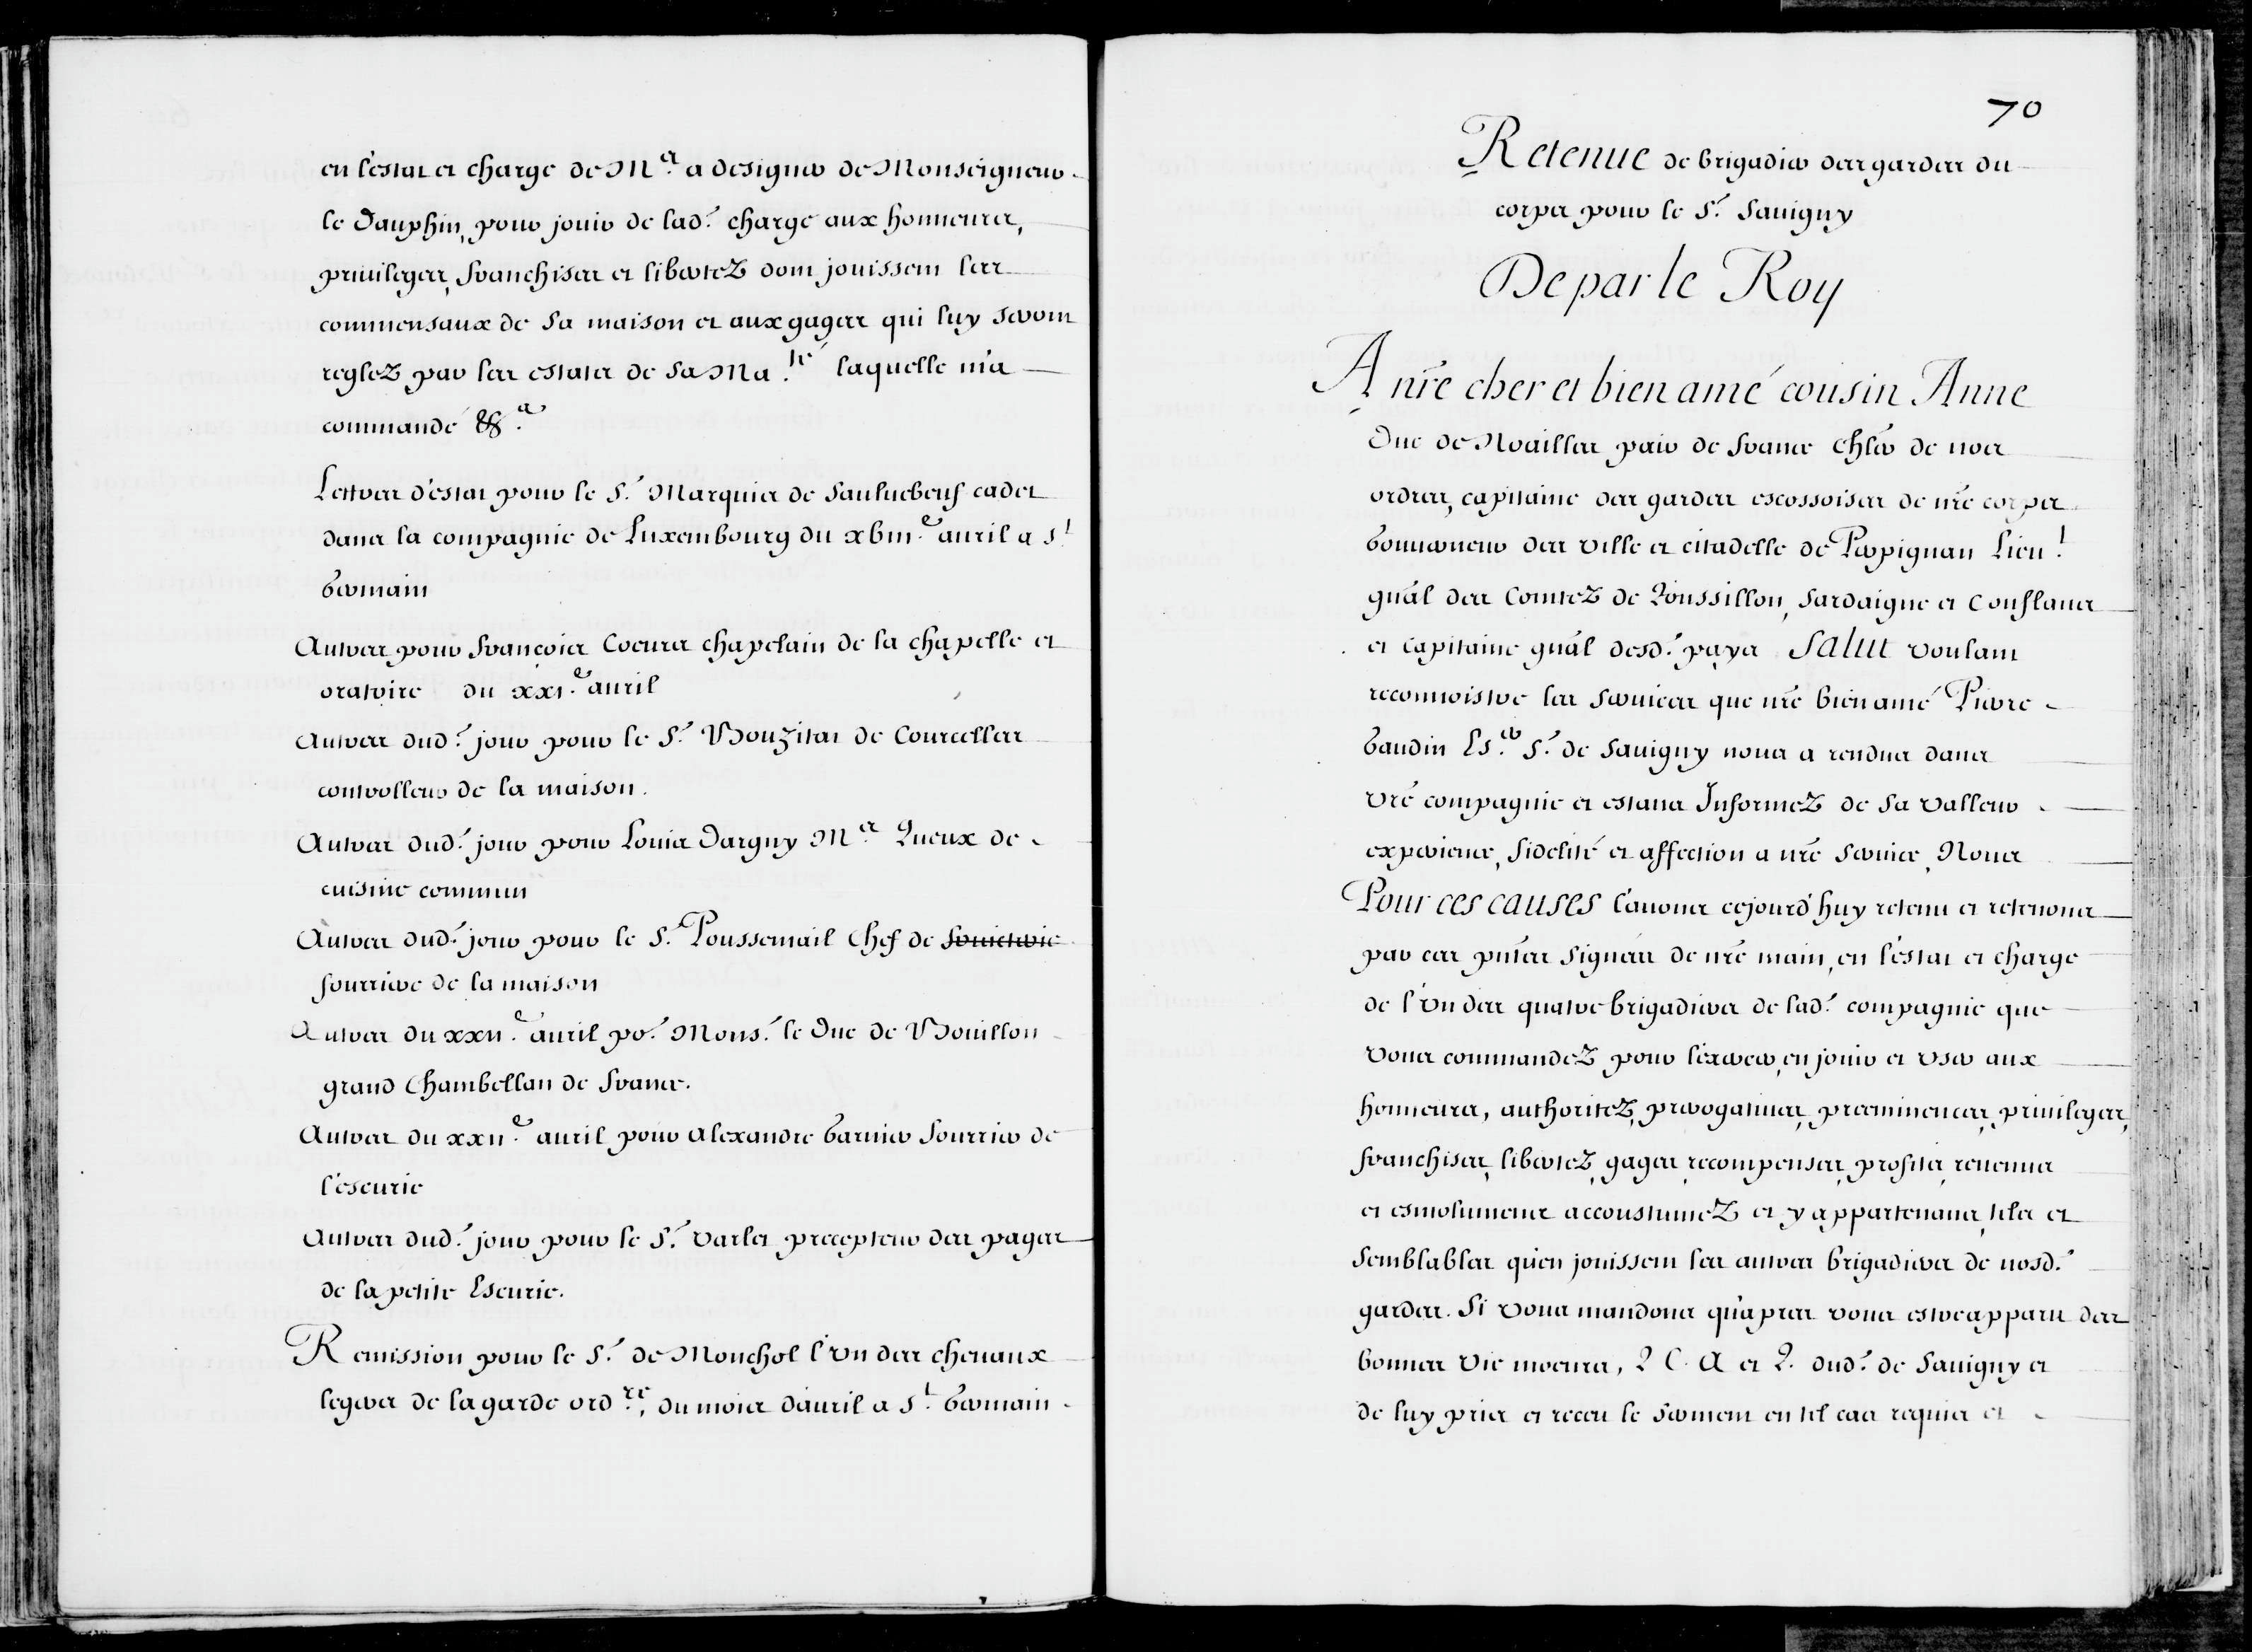 en l'estat et charge de M.e a designer de Monseigneur
le Dauphin, pour jouir de lad.e charge aux honneurs,
privileges, franchises et libertez dont jouissent les
commensaux de sa maison et aux gages qui luy seront
reglez par les estats de sa Ma.té laquelle m'a
commandé &c.a
Lettres d'estat pour le S.r Marquis de Sauluebeuf cadet
dans la compagnie de Luxembourg du xbiii.e auril a S.t
Germain
Autres pour François Coeurs chapelain de la chapelle et
oratoire du xxi.e auril
Autres dud.t jour pour le S.r Bouzitat de Courcelles
controlleur de la maison.
Autres dud.t jour pour Louis Dargny M.e Queux de
cuisine commun
Autres dud.t jour pour le S.r Poussemail Chef de fruicterie
fourriere de la maison
Autres du xxii.e auril po.r Mons.r le Duc de Bouillon
grand Chambellan de France.
Autres du xxii.e auril pour Alexandre Garnier fourrier de
l'escurie
Autres dud.t jour pour le S.r Varlet precepteur des pages
de la petite Escurie.
Remission pour le S.r de Monchol l'vn des cheuaux
legers de la garde ord.re, du mois d'auril a S.t Germain
70
Retenue de brigadier des gardes du
corps pour le S.r Sauigny
De par le Roy
A nr̃e cher et bien amé cousin Anne
Duc de Noailles pair de France Chl̃er de nos
ordres, capitaine des gardes escossoises de nr̃e corps
Gouuerneur des ville et citadelle de Perpignan Lieu.t
gñal des Comtez de Roussillon, Sardaigne et Conflans
et capitaine gñal desd.s pays Salut voulant
reconnoistre les seruices que nr̃e bien amé Pierre
Gaudin Es.er S.r de Sauigny nous a rendus dans
vr̃e compagnie et estans Informez de sa valleur
experience, fidelité et affection a nr̃e seruice, Nous
Pour ces causes l'auons cejourd'huy retenu et retenons
par ces pñtes signées de nr̃e main, en l'estat et charge
de l'vn des quatre brigadiers de lad.e compagnie que
vous commandez pour l'exercer, en jouir et vser aux
honneurs, authoritez, prerogatiues, preeminences, priuileges,
franchises, libertez, gages, recompenses, profits, reuenus
et esmolumens accoustumez et y appartenans, tels et
semblables qu'en jouissent les autres brigadiers de nosd.s
gardes. Si vous mandons qu'apres vous estre apparu des
bonnes vie moeurs, R C. A et R. dud.t de Sauigny et
de luy pris et receu le serment en tel cas requis et